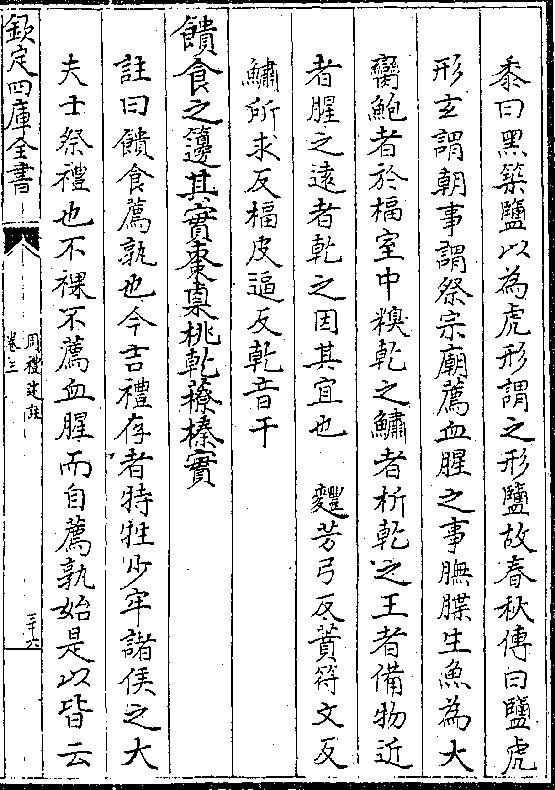 黍曰黑築鹽以為虎形謂之形鹽故春秋傳曰鹽虎
形玄謂朝事謂祭宗廟薦血腥之事膴膴生魚為大
臠鮑者於楅室中糗乾之鱐者析乾之王者備物近
者腥之遠者乾之因其宜也　麷芳弓反蕡符文反
鱐所求反楅皮逼反乾音干
饋食之籩其實棗㮚桃乾䕩榛實
註曰饋食薦孰也今吉禮存者特牲少牢諸侯之大
夫士祭禮也不祼不薦血腥而自薦孰始是以皆云
欽定四庫全書
周禮述註
卷三
三十六